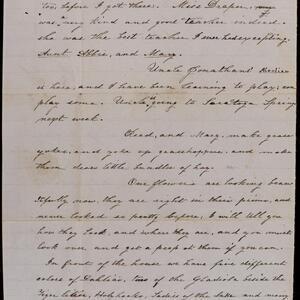 too, before I got there. Miss Draper, my
was, my kind and good teacher indeed.
she was the best teacher I ever had excepting
Aunt Abbie, and Mary.
Uncle Jonathans'
is here, and I have been learning to play, can
play some. Uncle going to Saratoga Springs
next week.
Clead, and Mary, make grass
yokes, and yoke up grasshoppers, and make
them draw little bundles of hay.
Our flowers are looking beau
tifully now, they are right in their prime, and
never looked so pretty before, I will tell you
how they look, and where they are, and you must
look over, and get a peep at them if you can.
In front of the house we have five different
colors of Dahlias, two of the Gladiola beside the
Tiger lilies, Holyhocks, Ladies of the Lake and many